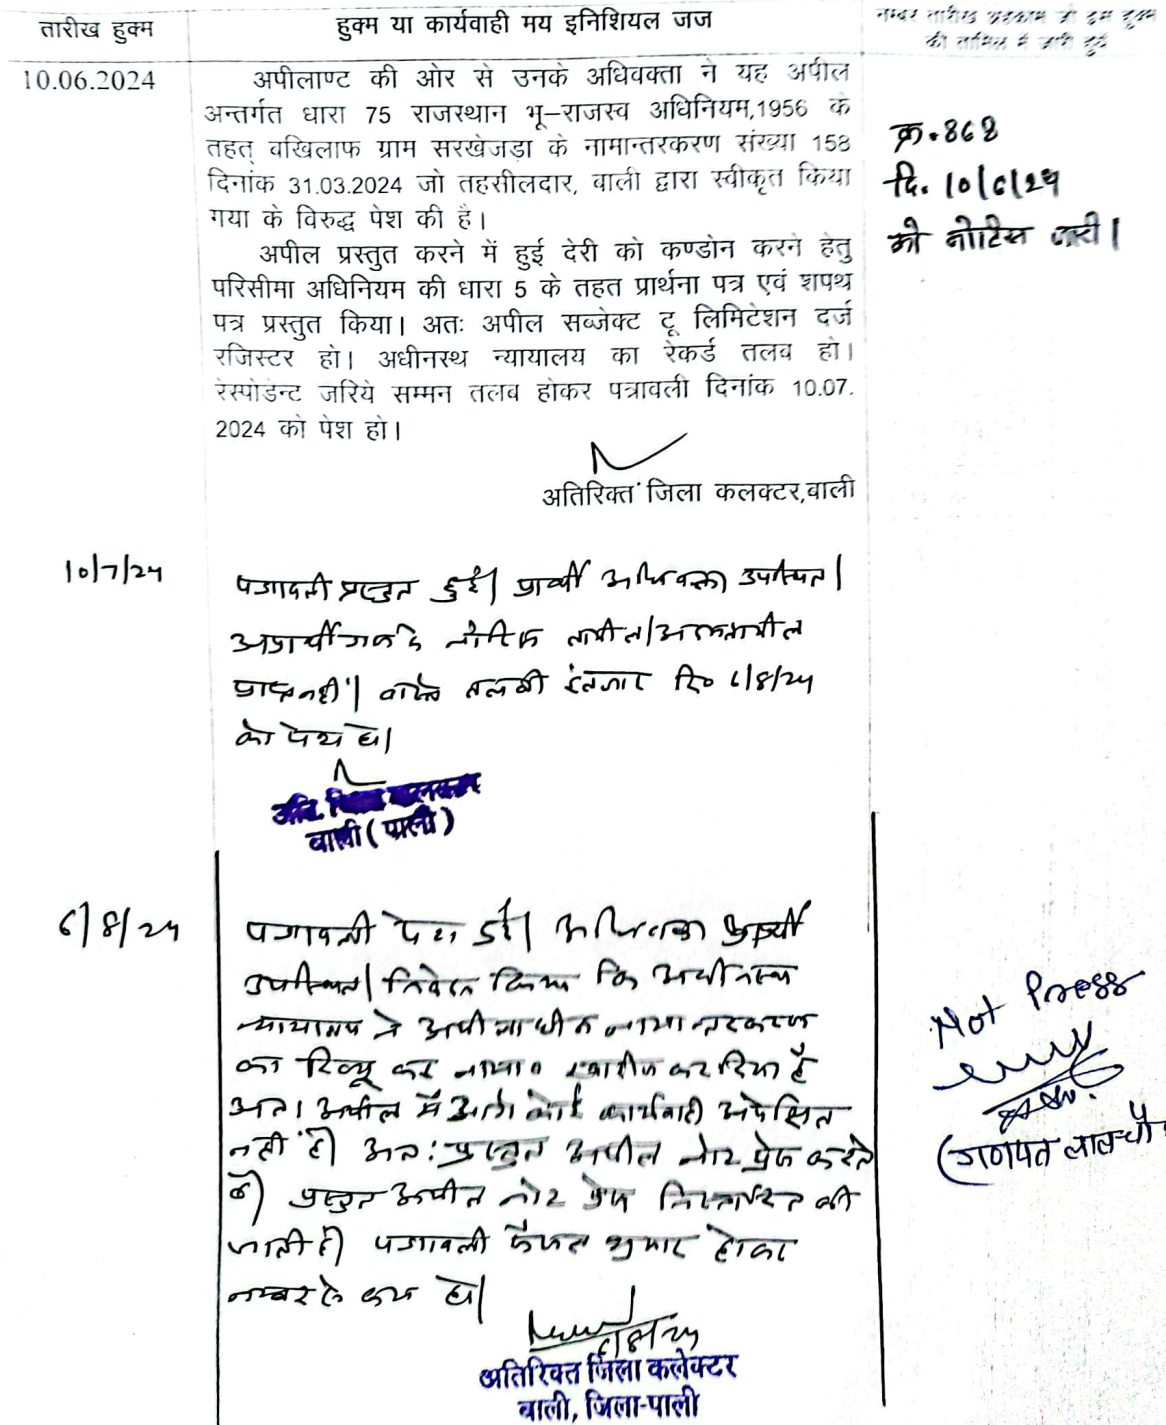 तारीख हुक्म
हुक्म या कार्यवाही मय इनिशियल जज
नम्बर तारीख अहकाम जो इस हुक्म
की तामिल में जारी हुये
10.06.2024
अपीलाण्ट की ओर से उनके अधिवक्ता ने यह अपील
अन्तर्गत धारा 75 राजस्थान भू–राजस्व अधिनियम,1956 के
तहत् बखिलाफ ग्राम सरखेजड़ा के नामान्तरकरण संख्या 158
दिनांक 31.03.2024 जो तहसीलदार, बाली द्वारा स्वीकृत किया
गया के विरुद्ध पेश की है।
अपील प्रस्तुत करने में हुई देरी को कण्डोन करने हेतु
परिसीमा अधिनियम की धारा 5 के तहत प्रार्थना पत्र एवं शपथ
पत्र प्रस्तुत किया। अतः अपील सब्जेक्ट टू लिमिटेशन दर्ज
रजिस्टर हो। अधीनस्थ न्यायालय का रेकर्ड तलब हो।
रेस्पोडेन्ट जरिये सम्मन तलब होकर पत्रावली दिनांक 10.07.
2024 को पेश हो।
अतिरिक्त जिला कलक्टर,बाली
क्र.868
दि. 10/6/24
को नोटिस जारी।
10/7/24
पत्रावली प्रस्तुत हुई। प्रार्थी अधिवक्ता उपस्थित।
अप्रार्थीगण के नोटिस तामील/अदमतामील
प्राप्त नहीं। वास्ते तलबी इंतजार दि० 6/8/24
को पेश हो।
अति. जिला कलक्टर
बाली (पाली)
6/8/24
पत्रावली पेश हुई। अधिवक्ता प्रार्थी
उपस्थित। निवेदन किया कि अधीनस्थ
न्यायालय ने अपीलाधीन नामान्तरकरण
का रिव्यू कर नामा० खारीज कर दिया है
अतः अपील में आगे कोई कार्यवाही अपेक्षित
नहीं है। अतः प्रस्तुत अपील नोट प्रेस करते
है। प्रस्तुत अपील नोट प्रेस निस्तारित की
जाती है। पत्रावली फैसल शुमार होकर
नम्बर से कम हो।
6/8/24
अतिरिक्त जिला कलेक्टर
बाली, जिला-पाली
Not Press
(गणपत लाल चौ